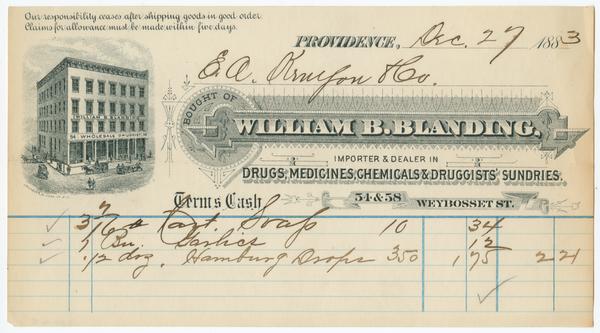 Our responsibility ceases after shipping goods in good order.
Claims for allowance must be made within five days.
PROVIDENCE, Dec. 27 1883
E. A. & Co.
BOUGHT OF
WILLIAM B. BLANDING.
WILLIAM B. BLANDING
54 WHOLESALE DRUGGIST. 58
IMPORTER & DEALER IN
DRUGS, MEDICINES, CHEMICALS & DRUGGISTS' SUNDRIES.
Terms Cash 54 & 58 WEYBOSSET ST.
Cast. Soap 10 34
Bu. Garlics 12
1/2 doz. Hamburg Drops 350 1 75 2 21